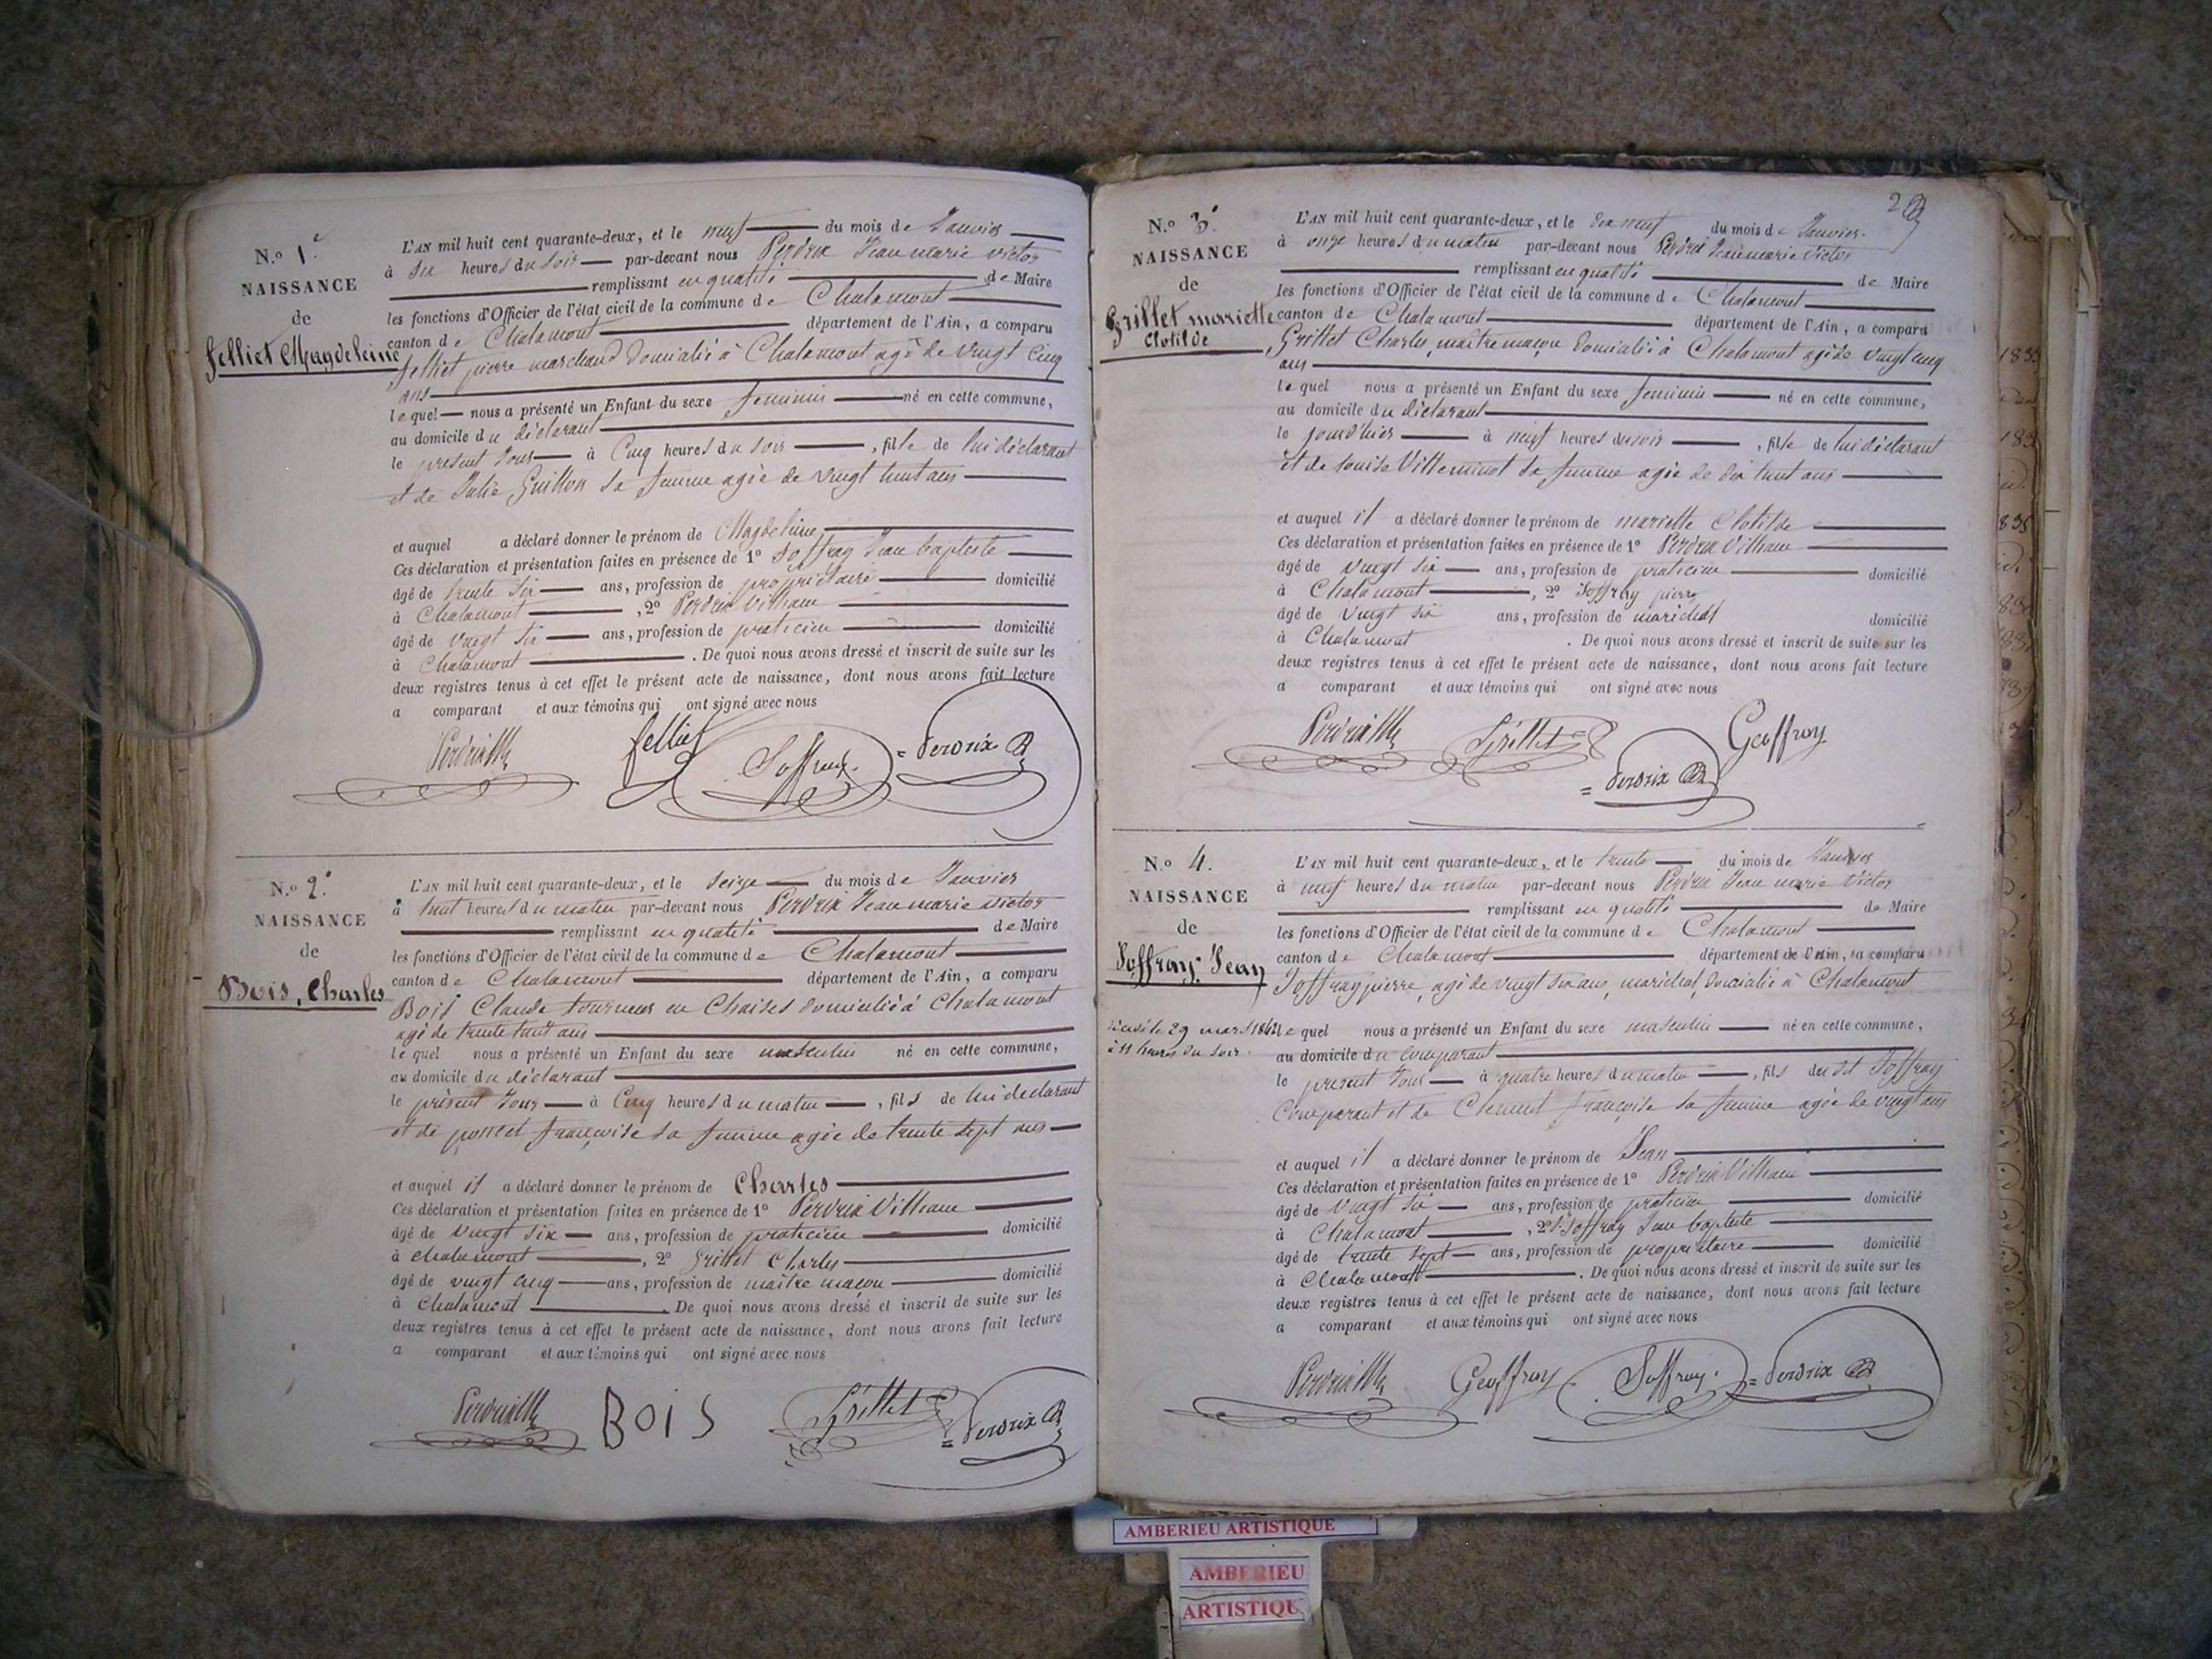 N.o 1.
NAISSANCE
de
Felliet Magdeleine
L'AN mil huit cent quarante-deux, et le neuf du mois de Janvier
à six heures du soir par-devant nous Perdrix Jean marie victor
remplissant en qualité de Maire
les fonctions d'Officier de l'état civil de la commune de Chalamont
canton de Chalamont département de l'Ain, a comparu
felliet pierre marchand domicilié à Chalamont agé de vingt cinq
ans
lequel nous a présenté un Enfant du sexe feminin né en cette commune,
au domicile du déclarant
le present Jour à Cinq heures du soir, fille de lui déclarant
et de Julie Guillon sa femme agée de vingt huit ans
et auquel a déclaré donner le prénom de Magdeleine
Ces déclaration et présentation faites en présence de 1° Joffray Jean baptiste
âgé de trente six ans, profession de propriétaire domicilié
à Chalamont, 2° Perdrix Villiam
âgé de vingt six ans, profession de praticien domicilié
à Chalamont. De quoi nous avons dressé et inscrit de suite sur les
deux registres tenus à cet effet le présent acte de naissance, dont nous avons fait lecture
a comparant et aux témoins qui ont signé avec nous
felliet Joffray Perdrix
N.o 2.
NAISSANCE
de
Bois, Charles
L'AN mil huit cent quarante-deux, et le seize du mois de Janvier
à huit heures du matin par-devant nous Perdrix Jean marie victor
remplissant en qualité de Maire
les fonctions d'Officier de l'état civil de la commune de Chalamont
canton de Chalamont département de l'Ain, a comparu
Bois Claude tourneur en Chaises domicilié à Chalamont
agé de trente huit ans
lequel nous a présenté un Enfant du sexe masculin né en cette commune,
au domicile du déclarant
le présent Jour à Cinq heures du matin, fils de lui declarant
et de francoise sa femme agée de trente sept ans
et auquel il a déclaré donner le prénom de Charles
Ces déclaration et présentation faites en présence de 1° Perdrix Villiam
âgé de vingt six ans, profession de praticien domicilié
à chalamont, 2° Grillet Charles
âgé de vingt cinq ans, profession de maitre maçon domicilié
à Chalamont. De quoi nous avons dressé et inscrit de suite sur les
deux registres tenus à cet effet le présent acte de naissance, dont nous avons fait lecture
a comparant et aux témoins qui ont signé avec nous
BOIS Grillet Perdrix
2
N.o 3.
NAISSANCE
de
Grillet mariette
Clotilde
L'AN mil huit cent quarante-deux, et le dix neuf du mois de Janvier
à onze heures du matin par-devant nous Perdrix Jean marie Victor
remplissant en qualité de Maire
les fonctions d'Officier de l'état civil de la commune de Chalamont
canton de Chalamont département de l'Ain, a comparu
Grillet Charles, maitre maçon domicilié à Chalamont agé de vingt cinq
ans
lequel nous a présenté un Enfant du sexe feminin né en cette commune,
au domicile du déclarant
le jour d'hier à neuf heures du soir, fille de lui déclarant
et de Louise Villeminot sa femme agée de dix huit ans
et auquel il a déclaré donner le prénom de mariette Clotilde
Ces déclaration et présentation faites en présence de 1° Perdrix Villiam
âgé de vingt six ans, profession de praticien domicilié
à Chalamont, 2° Joffray pierre
âgé de vingt six ans, profession de marichal domicilié
à Chalamont. De quoi nous avons dressé et inscrit de suite sur les
deux registres tenus à cet effet le présent acte de naissance, dont nous avons fait lecture
a comparant et aux témoins qui ont signé avec nous
Grillet Perdrix Geoffroy
N.o 4.
NAISSANCE
de
Joffray Jean
29 mars 1862
à 11 heures du soir.
L'AN mil huit cent quarante-deux, et le trente du mois de Janvier
à neuf heures du matin par-devant nous Perdrix Jean marie Victor
remplissant en qualité de Maire
les fonctions d'Officier de l'état civil de la commune de Chalamont
canton de Chalamont département de l'Ain, a comparu
Joffray pierre, agé de vingt six ans, marichal, domicilié à Chalamont
lequel nous a présenté un Enfant du sexe masculin né en cette commune,
au domicile du comparant
le present Jour à quatre heures du matin, fils du dit Joffray
Comparant et de Clement françoise sa femme agée de vingt ans
et auquel il a déclaré donner le prénom de Jean
Ces déclaration et présentation faites en présence de 1° Perdrix Villiam
âgé de vingt six ans, profession de praticien domicilié
à Chalamont, 2° Joffray Jean baptiste
âgé de trente sept ans, profession de propriétaire domicilié
à Chalamont. De quoi nous avons dressé et inscrit de suite sur les
deux registres tenus à cet effet le présent acte de naissance, dont nous avons fait lecture
a comparant et aux témoins qui ont signé avec nous
Geoffroy Joffray Perdrix
AMBERIEU ARTISTIQUE
AMBERIEU
ARTISTIQUE